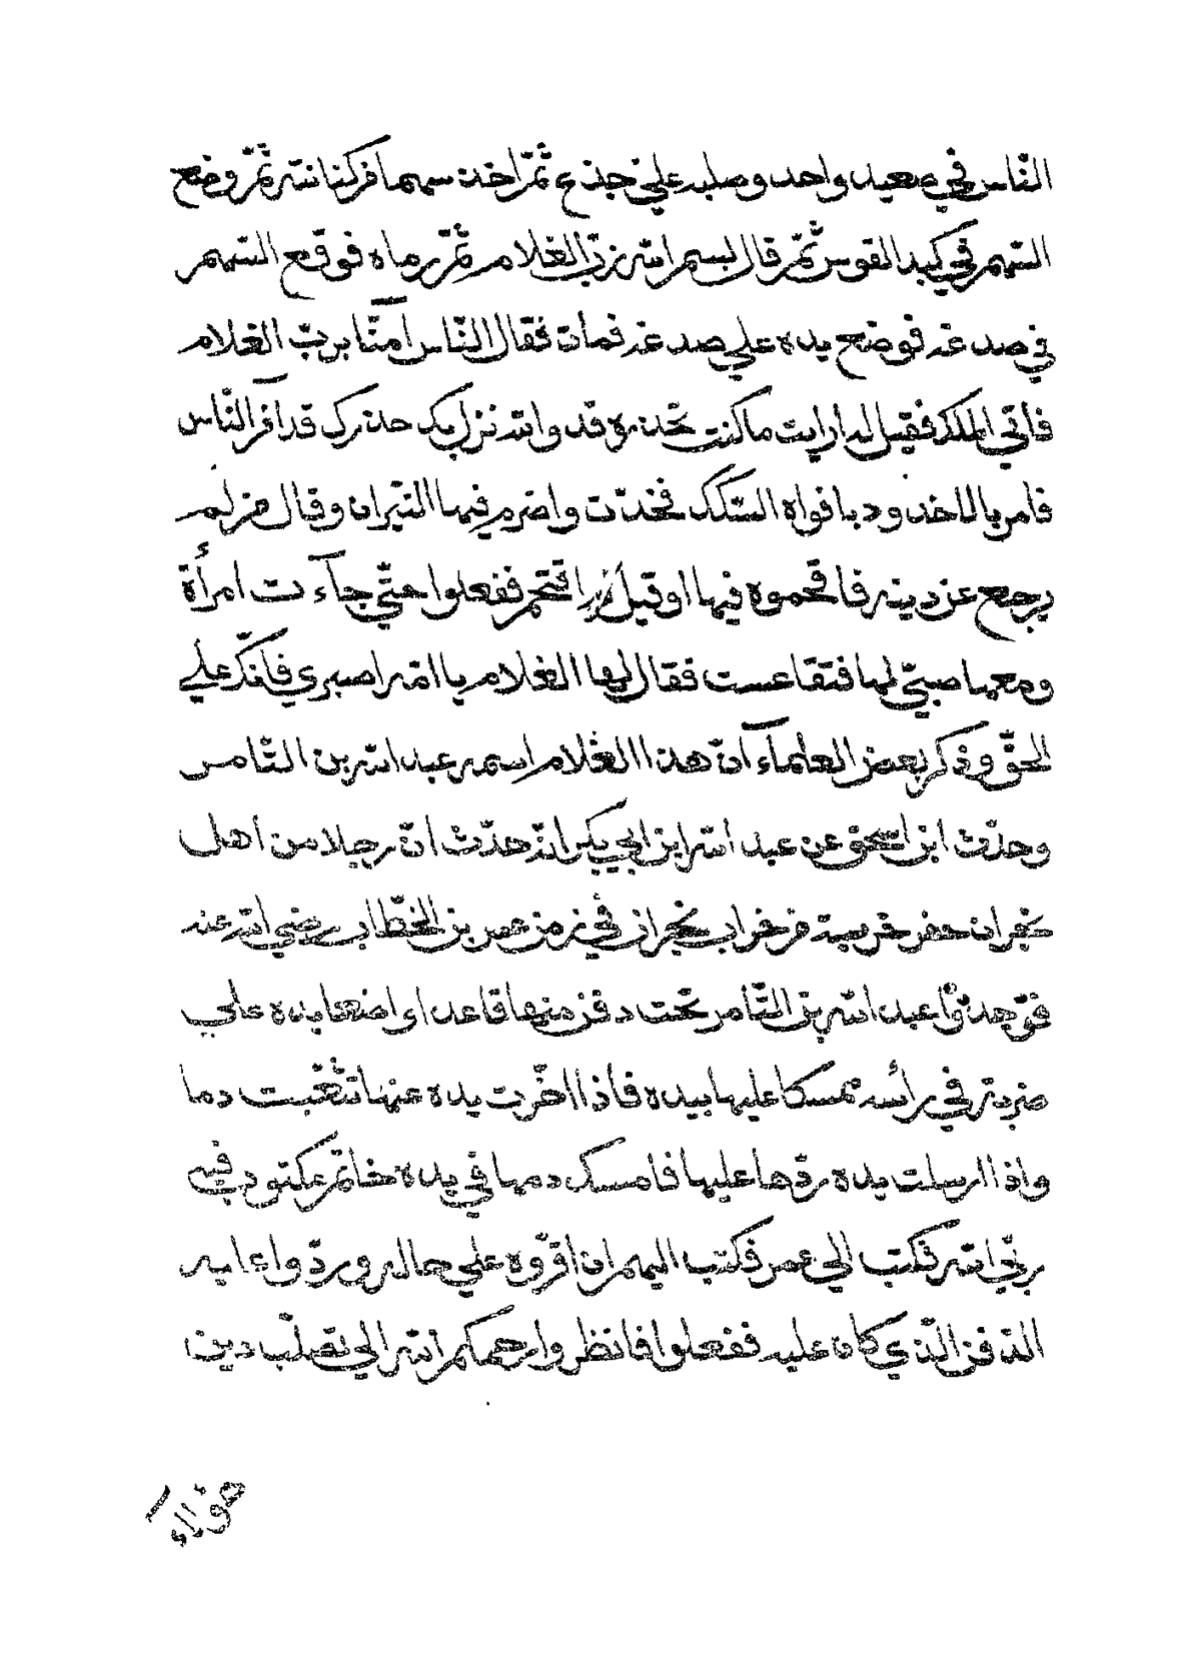 النّاس في صعيد واحد وصلبه علي جذع ثمّ اخذ سهما من كنانته ثمّ وضع
السّهم في كبد القوس ثمّ قال بسم الله ربّ الغلام ثمّ رماه فوقع السّهم
في صدغه فوضع يده علي صدغه فمات فقال النّاس آمنّا بربّ الغلام
فاتي الملك فقيل له ارايت ما كنت تحذره قد والله نزل بك حذرك قد آمن النّاس
فامر بالاخدود بافواه السّكك فخدّت واضرم فيها النّيران وقال من لم
يرجع عن دينه فاقحموه فيها او قيل له اقتحم ففعلوا حتّي جآءت امرأة
ومعها صبيّ لها فتقاعست فقال لها الغلام يا امّه اصبري فانّك علي
الحقّ وذكر بعض العلمآء انّ هذا الغلام اسمه عبد الله بن الثّامر
وحدّث ابن اسحق عن عبد الله ابن ابي بكر انّه حدّث انّ رجلا من اهل
نجران حفر خربة من خراب نجران في زمن عمر بن الخطّاب رضي الله عنه
فوجدوا عبد الله بن الثّامر تحت دفن منها قاعدا واضعا يده علي
ضربة في رأسه ممسكا عليها بيده فاذا اخّرت يده عنها تثعّبت دما
واذا ارسلت يده ردّها عليها فامسك دمها في يده خاتم مكتوب فيه
ربّي الله فكتب الي عمر فكتب اليهم ان اقرّوه علي حاله وردّوا عليه
الدّفن الّذي كان عليه ففعلوا فانظروا رحمكم الله الي تصلّب دين
هؤلآء